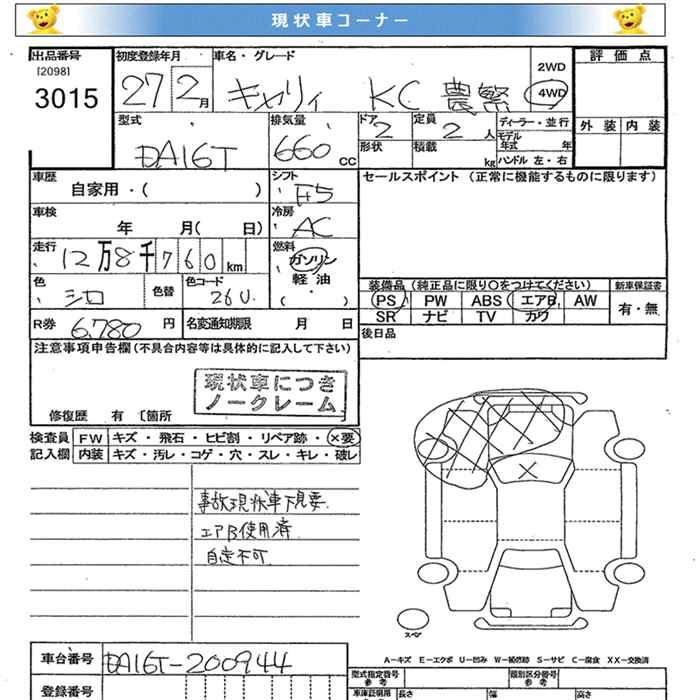 現状車コーナー
出品番号 初度登録年月 車名・グレード 評価点
[2098]
3015 27 2月 キャリィ KC 農繁 2WD 4WD
型式 排気量 ドア 定員 ディーラー・並行 外装 内装
DA16T 660 CC 2 2人 モデル年式 年
形状 積載 kg ハンドル 左・右
車歴 シフト セールスポイント (正常に機能するものに限ります)
自家用・( ) F5
車検 冷房
年 月( 日) AC
走行 燃料
12万8千760km ガソリン
軽油
・( )
色 色替 色コード
シロ 26U
装備品 (純正品に限り〇をつけてください) 新車保証書
PS PW ABS エアB AW 有・無
SR ナビ TV カワ
R券 6,780円 名変通知期限 月 日 後日品
注意事項申告欄 (不具合内容等は具体的に記入して下さい)
現状車につき
ノークレーム
修復歴 有 〔箇所
検査員 FW キズ・飛石・ヒビ割・リペア跡・×要
記入欄 内装 キズ・汚レ・コゲ・穴・スレ・キレ・破レ
事故現状車下見要
エアB使用済
自走不可
スペア
A-キズ E-エクボ U-凹み W-補修跡 S-サビ C-腐食 XX-交換済
車台番号 DA16T-200944
型式指定番号 参考 類別区分番号 参考
登録番号
車庫証明用 長さ 幅 高さ